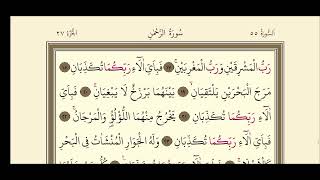 السورة ٥٥ سُورَةُ الرَّحْمٰنِ الجزء ٢٧
رَبُّ الْمَشْرِقَيْنِ وَرَبُّ الْمَغْرِبَيْنِ ١٧ فَبِأَيِّ اٰلَآءِ رَبِّكُمَا تُكَذِّبَانِ ١٨
مَرَجَ الْبَحْرَيْنِ يَلْتَقِيَانِ ١٩ بَيْنَهُمَا بَرْزَخٌ لَا يَبْغِيَانِ ٢٠ فَبِأَيِّ
اٰلَآءِ رَبِّكُمَا تُكَذِّبَانِ ٢١ يَخْرُجُ مِنْهُمَا اللُّؤْلُؤُ وَالْمَرْجَانُ ٢٢
فَبِأَيِّ اٰلَآءِ رَبِّكُمَا تُكَذِّبَانِ ٢٣ وَلَهُ الْجَوَارِ الْمُنْشَاٰتُ فِي الْبَحْرِ